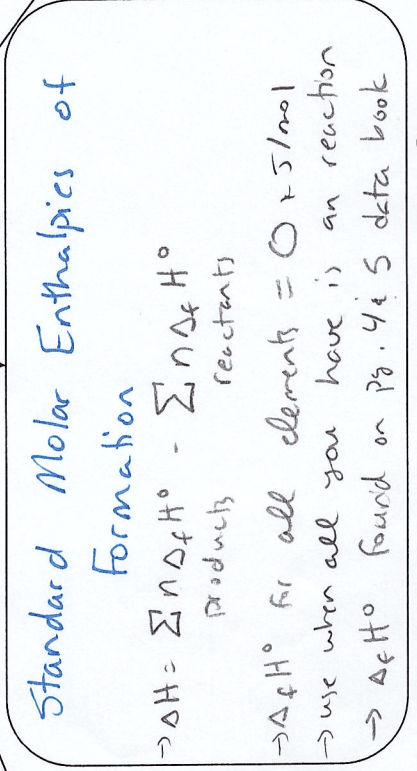 Standard Molar Enthalpies of
Formation
→ ΔH = Σ n ΔfH° - Σ n ΔfH°
products reactants
→ ΔfH° for all elements = 0 kJ/mol
→ use when all you have is an reaction
→ ΔfH° found on pg. 4 & 5 data book